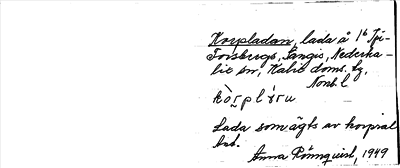 Korpladan, lada å 1⁶ Tpi-
Forsbergs, Sangis, Nederka-
lix sn, Kalix doms. lg,
Norrb. l
Lada som ägts av korpral
Anna Rönnquist, 1949